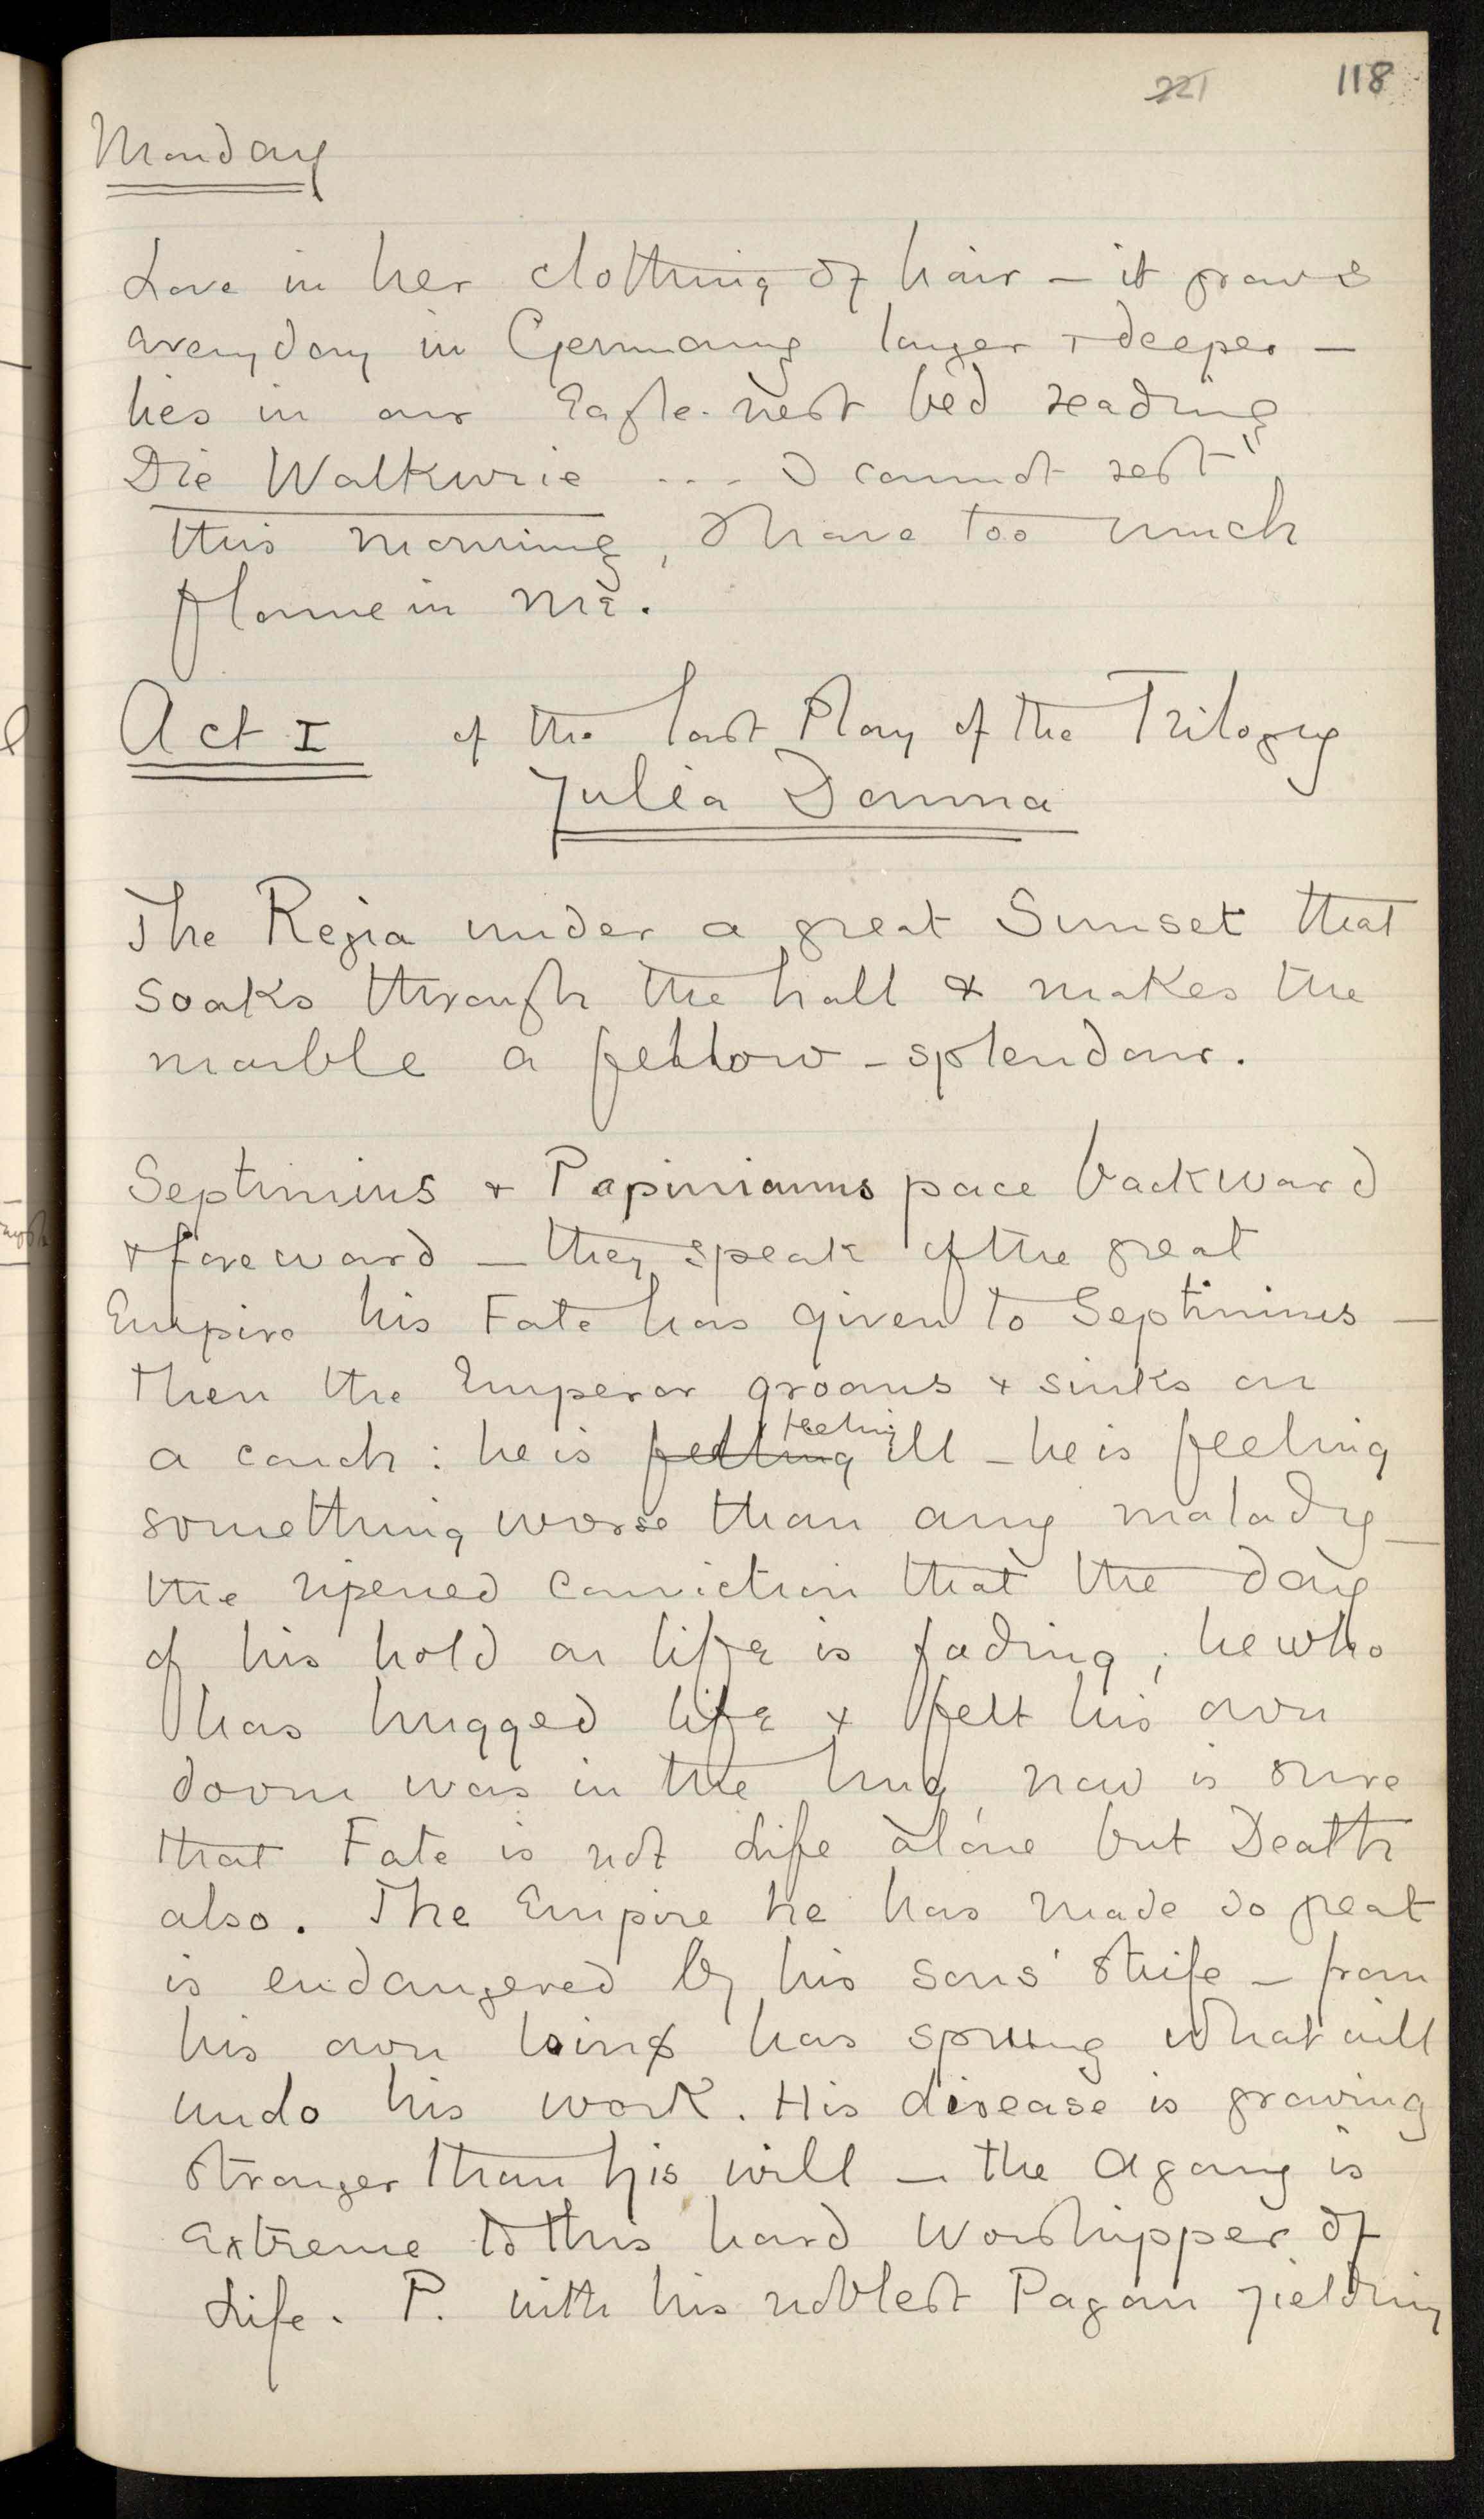 221 118
Monday
Love in her clothing of hair – it grows
every day in Germany longer & deeper –
lies in our Eagle-nest bed reading
Die Walkurie ... I cannot rest"
this morning, I have too much
flame in me.
Act I of the last Play of the Trilogy
Julia Domna
The Regia under a great Sunset that
soaks through the hall & makes the
marble a fellow-splendour.
Septimius & Papinianus pace backward
& foreward – they speak of the great
Empire his Fate has given to Septimius –
then the Emperor groans & sinks on
a couch: he is felling feeling ill – he is feeling
something worse than any malady –
the ripened conviction that the day
of his hold on life is fading; he who
has hugged life & felt his own
doom was in the hug, now is sure
that Fate is not Life alone but Death
also. The Empire he has made so great
is endangered by his sons' strife – from
his own loins has sprung what will
undo his work. His disease is growing
stronger than his will – the agony is
extreme to this hard worshipper of
Life. P. with his noblest Pagan yielding